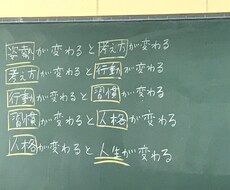 姿勢が変わると考え方が変わる
考え方が変わると行動が変わる
行動が変わると習慣が変わる
習慣が変わると人格が変わる
人格が変わると人生が変わる